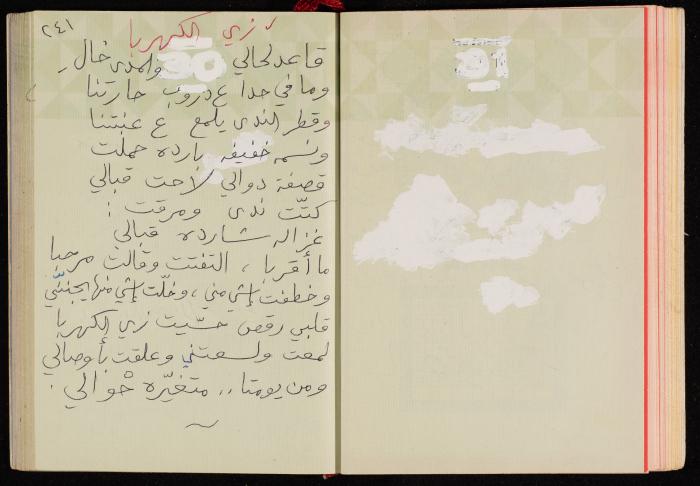 ٢٤١
زي الكهربا
قاعد لحالي والمدى خال
30
31
وما في حدا ع دروب حارتنا
وقطر الندى يلمع ع عتبتنا
ونسمه خفيفه بارده حملت
قصفة دوالي لاحت قبالي
كتّت ندى ومرقت :
غزاله شارده قبالي
ما أقربا ، التفتت وقالت مرحبا
وخطفت إشي مني ، وخلّت إشي منها يجننّي
قلبي رقص حسّيت زي الكهربا
لمعت ولسعتني وعلقت بأوصالي
ومن يومتا .. متغيّره حْوالي .